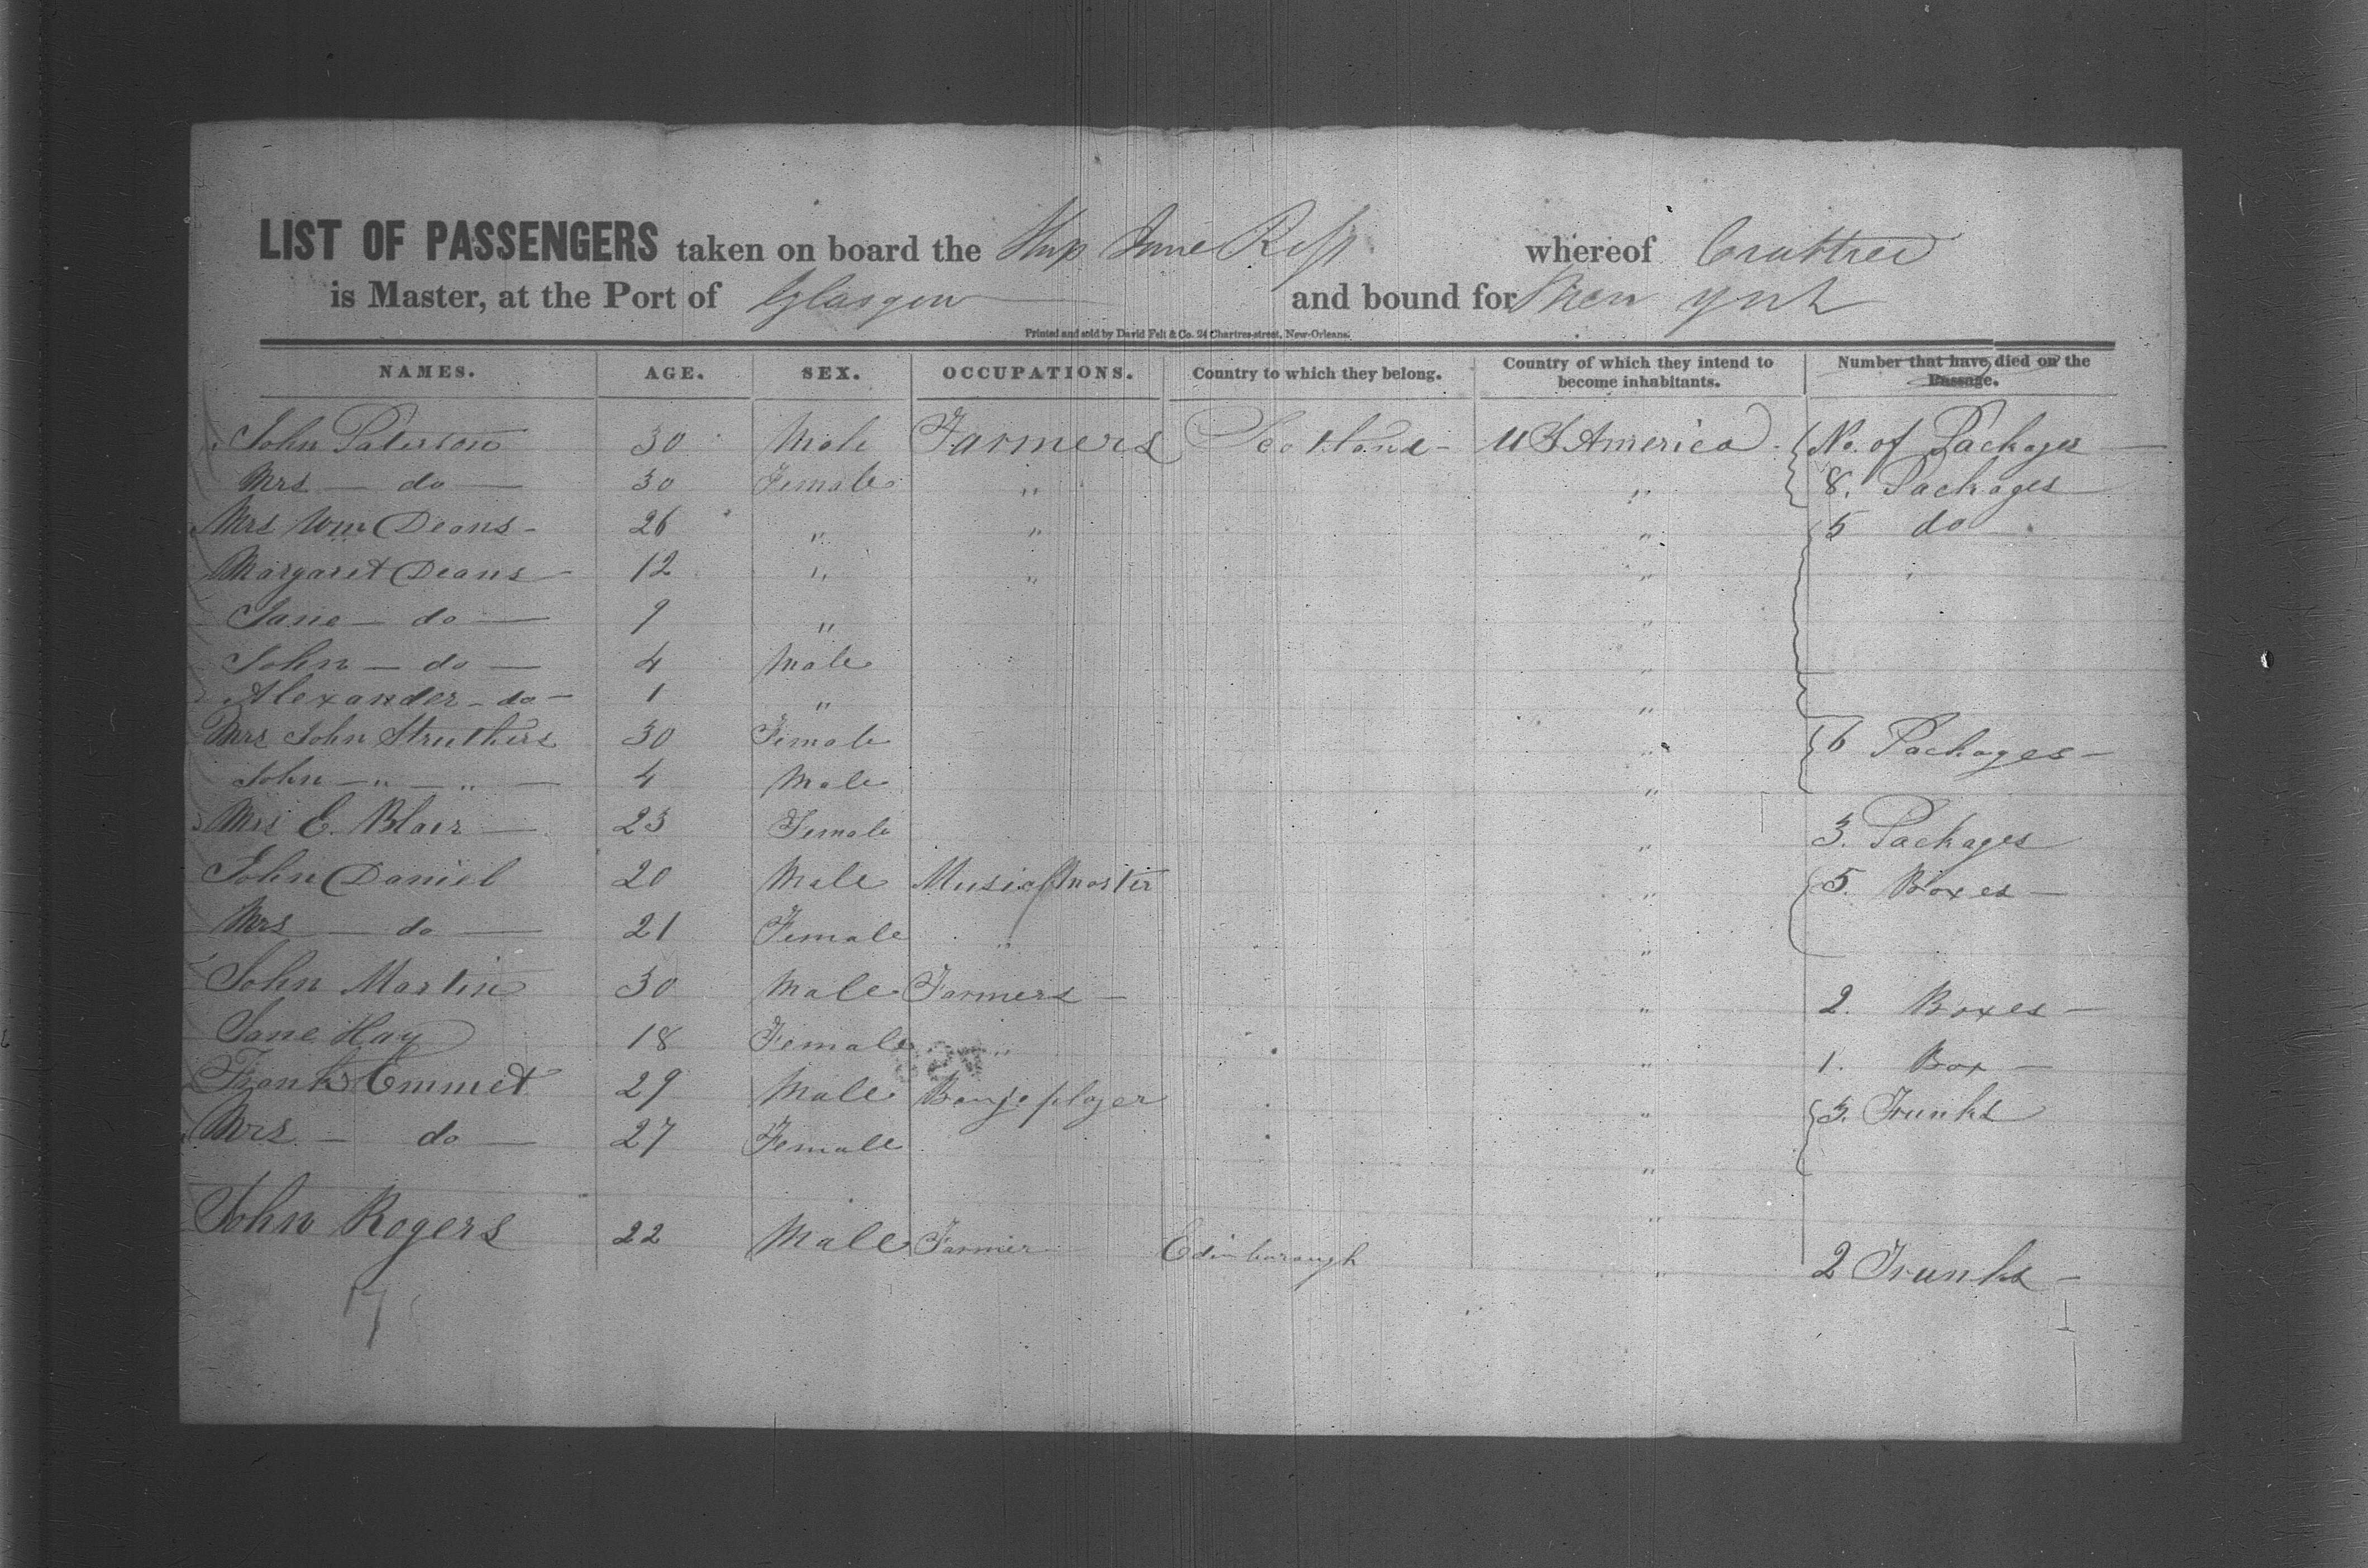 LIST OF PASSENGERS taken on board the Ship Jane Ross whereof Crabtree
is Master, at the Port of Glasgow and bound for New York
Printed and sold by David Felt & Co. 24 Chartres-street, New-Orleans.
NAMES. AGE. SEX. OCCUPATIONS. Country to which they belong. Country of which they intend to become inhabitants. Number that have died on the Passage.
John Paterson 30 Male Farmers Scotland U S America No. of Packages
Mrs — do — 30 Female " " 8. Packages
Mrs Wm Deans 26 " " " 5 do
Margaret Deans 12 " " "
Jane — do — 9 " "
John — do — 4 Male "
Alexander — do — 1 " "
Mrs John Struthers 30 Female " 6 Packages
John — " — " — 4 Male "
Mrs E. Blair 23 Female " 3. Packages
John Daniel 20 Male Music Master " 5. Boxes
Mrs — do — 21 Female " "
John Martin 30 Male Farmers " 2. Boxes
Jane Hay 18 Female " " 1. Box
Frank Emmet 29 Male Banjo player " 3. Trunks
Mrs — do — 27 Female "
John Rogers 22 Male Farmer Edinborough " 2 Trunks
17